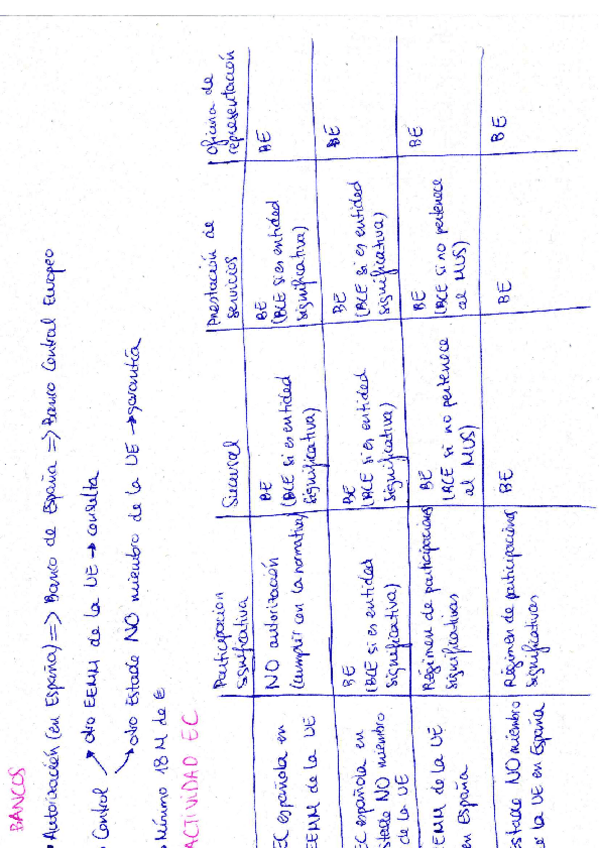 BANCOS
Autorización (en España) => Banco de España => Banco Central Europeo
Control → otro EEMM de la UE → consulta
→ otro Estado NO miembro de la UE → garantía
Mínimo 18 M de €
ACTIVIDAD EC
Participación significativa
Sucursal
Prestación de servicios
Oficina de representación
EC española en EEMM de la UE
NO autorización (cumplir con la normativa)
BE (BCE si es entidad significativa)
BE (BCE si es entidad significativa)
BE
EC española en
estado NO miembro
de la UE
BE (BCE si es entidad significativa)
BE (BCE si es entidad significativa)
BE (BCE si es entidad significativa)
BE
EEMM de la UE
en España
Régimen de participaciones significativas
BE (BCE si no pertenece al MUS)
BE (BCE si no pertenece al MUS)
BE
estado NO miembro
de la UE en España
Régimen de participaciones significativas
BE
BE
BE